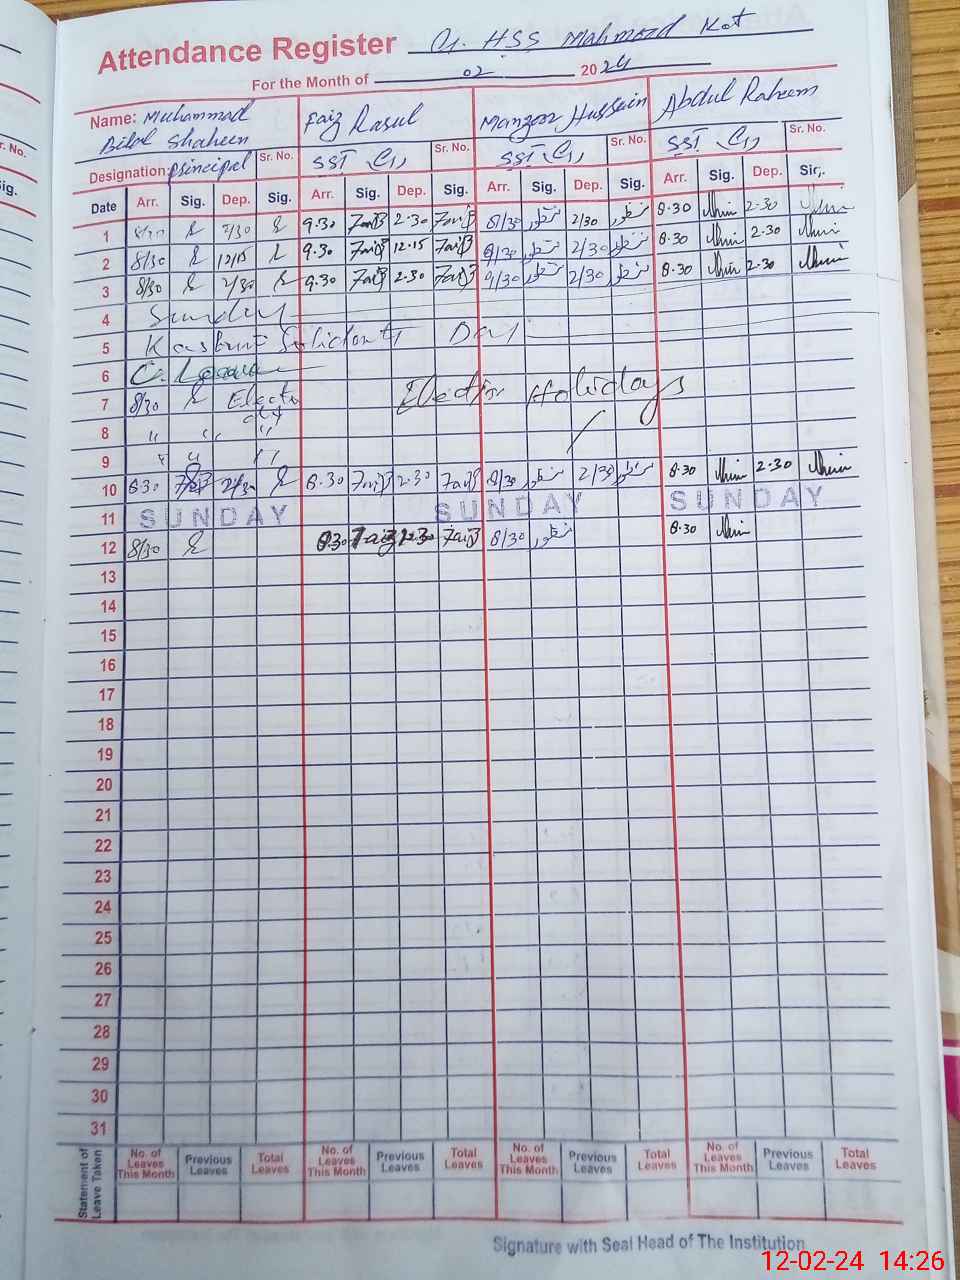 Attendance Register G. HSS Mahmood Kot
For the Month of 02 2024
Name: Muhammad Bilal Shaheen Faiz Rasul Manzoor Hussain Abdul Raheem
Designation: Principal Sr. No. SST Sr. No. SST Sr. No. SST Sr. No.
Date Arr. Sig. Dep. Sig. Arr. Sig. Dep. Sig. Arr. Sig. Dep. Sig. Arr. Sig. Dep. Sig.
1 8/30 2/30 9.30 Faiz 2.30 Faiz 8/30 منظور 2/30 منظور 8.30 2.30
2 8/30 12/15 9.30 Faiz 12.15 Faiz 9/30 منظور 2/30 منظور 8.30 2.30
3 8/30 2/30 9.30 Faiz 2.30 Faiz 9/30 منظور 2/30 منظور 8.30 2.30
4 Sunday
5 Day
6
7 8/30 Election Holidays
8 " " "
9 " " "
10 830 2/30 8.30 Faiz 2.30 Faiz 8/30 منظور 2/30 منظور 8.30 2.30
11 SUNDAY SUNDAY SUNDAY
12 8/30 830 Faiz Faiz 8/30 منظور 8.30
13
14
15
16
17
18
19
20
21
22
23
24
25
26
27
28
29
30
31
Statement of Leave Taken No. of Leaves This Month Previous Leaves Total Leaves No. of Leaves This Month Previous Leaves Total Leaves No. of Leaves This Month Previous Leaves Total Leaves No. of Leaves This Month Previous Leaves Total Leaves
Signature with Seal Head of The Institution
12-02-24 14:26